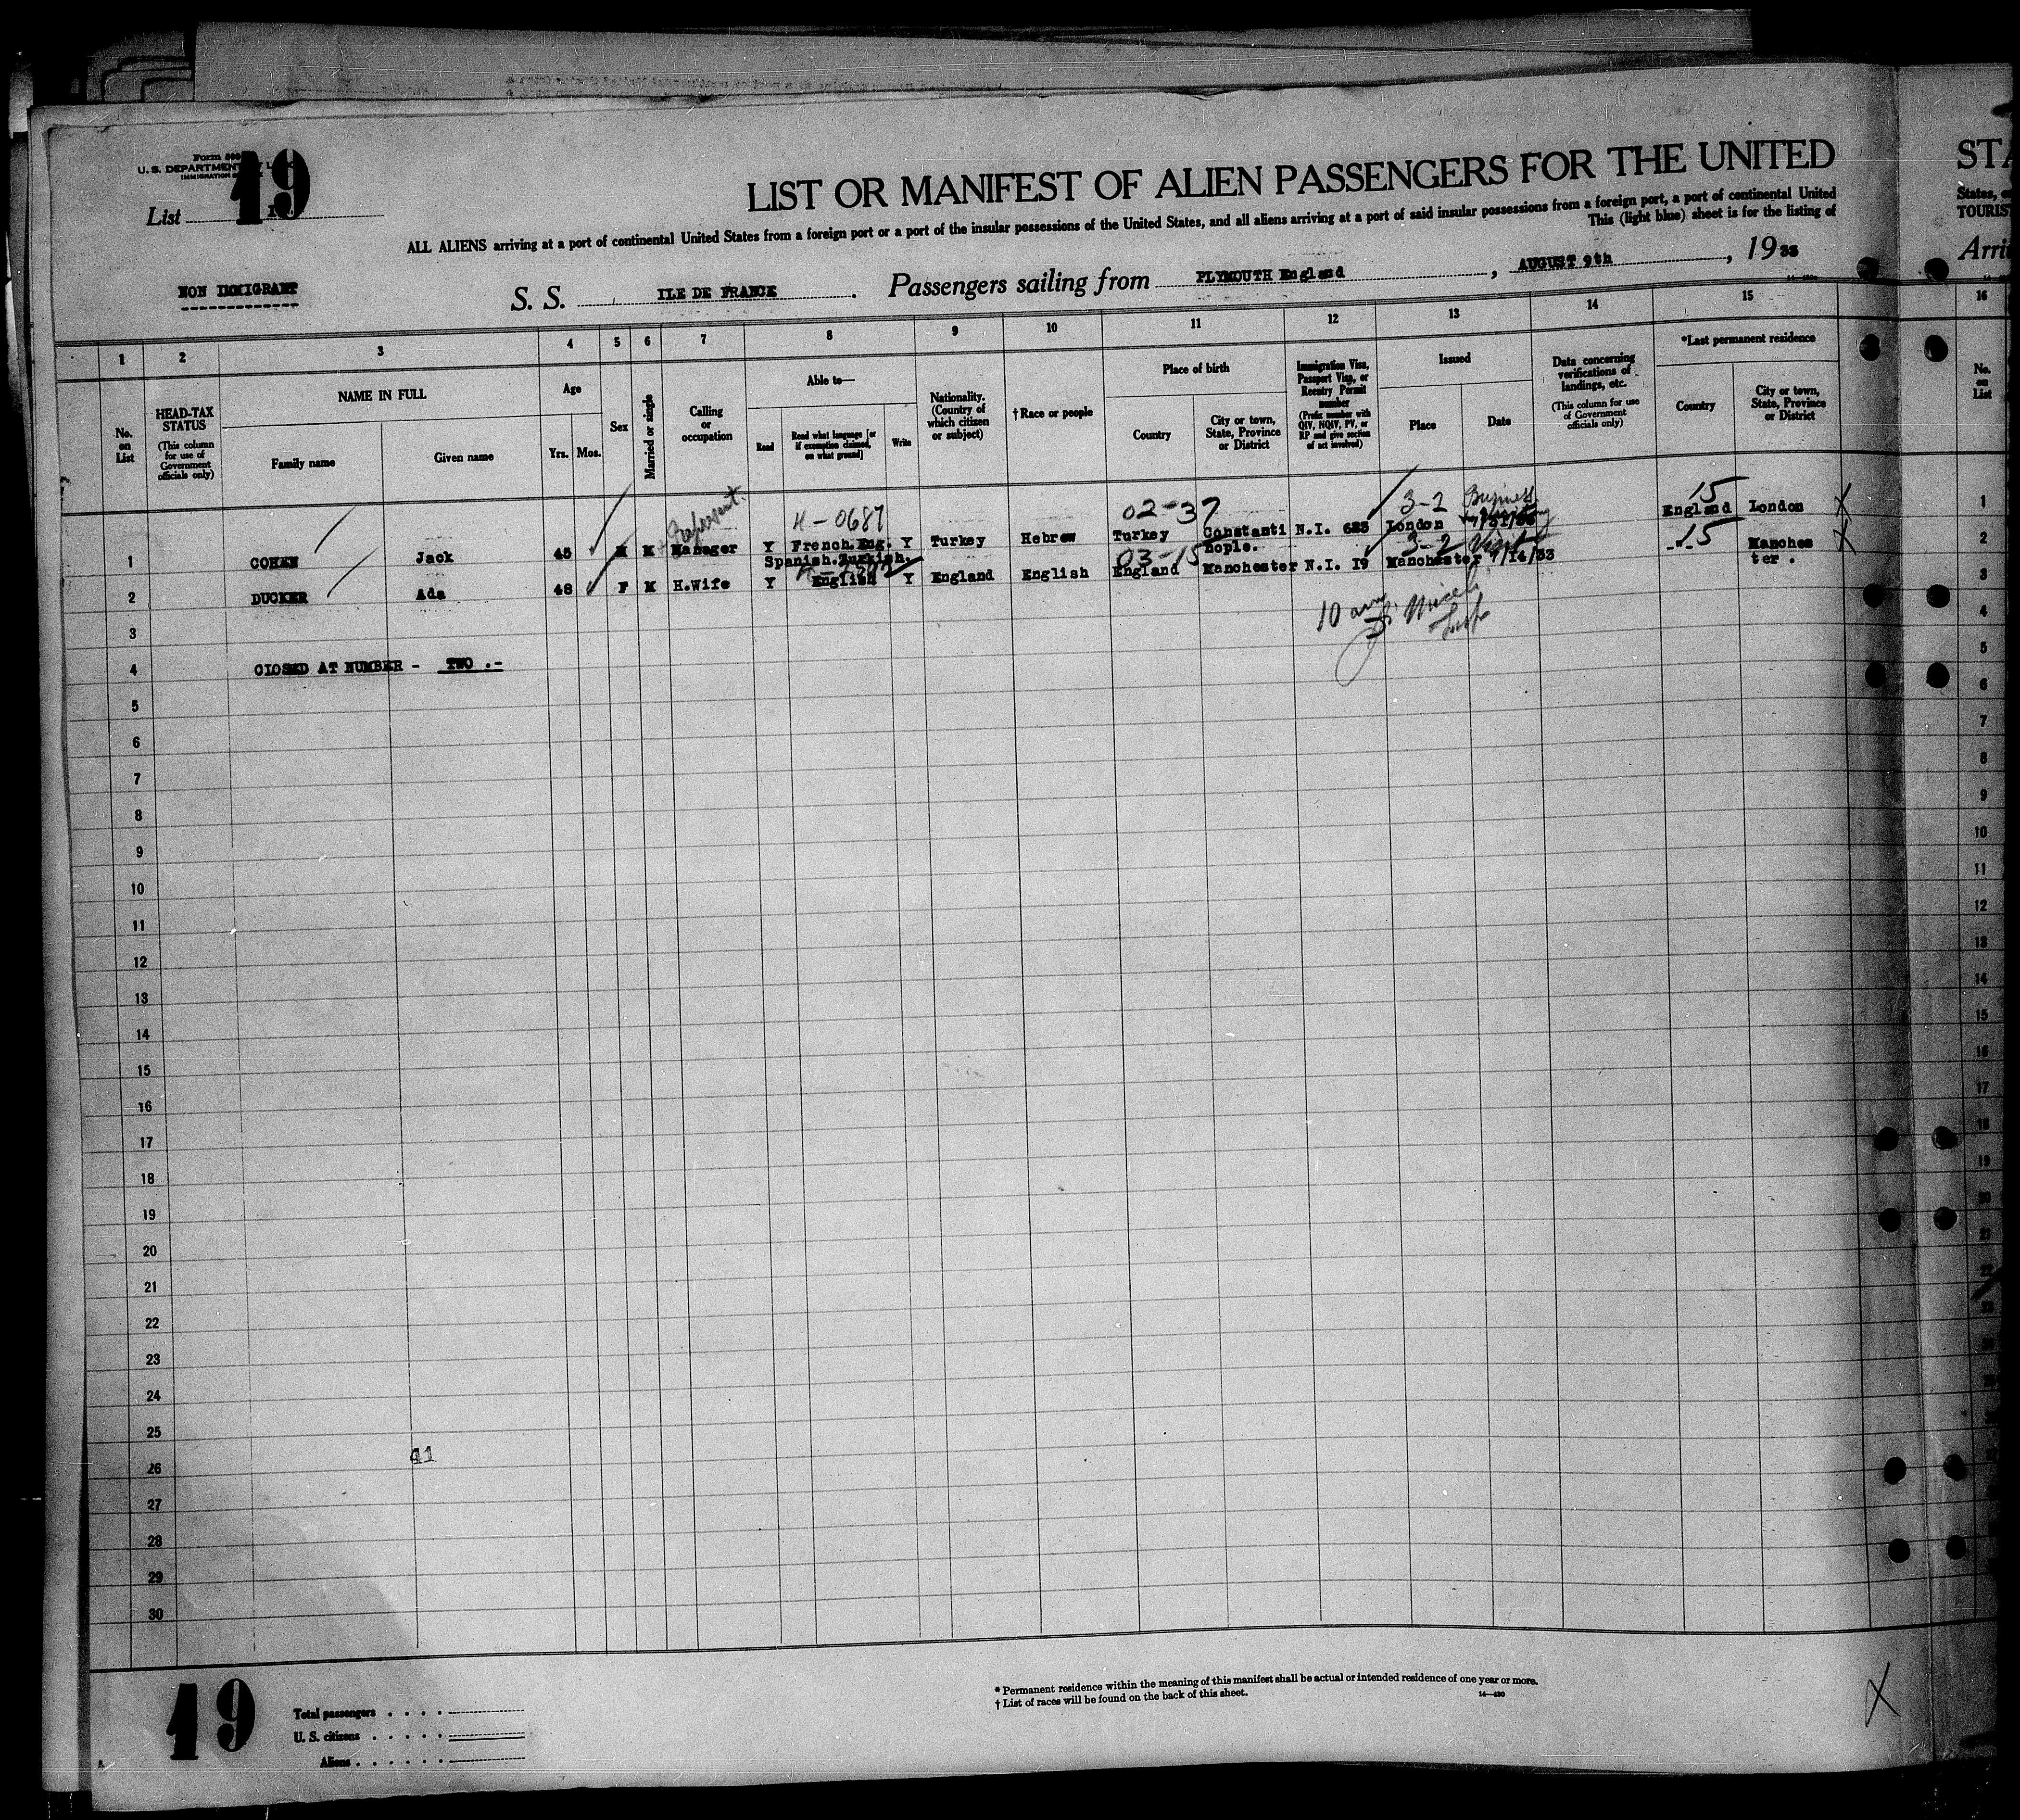 Form 500
U. S. DEPARTMENT OF LABOR
IMMIGRATION
List 19
LIST OR MANIFEST OF ALIEN PASSENGERS FOR THE UNITED
ALL ALIENS arriving at a port of continental United States from a foreign port or a port of the insular possessions of the United States, and all aliens arriving at a port of said insular possessions from a foreign port, a port of continental United
This (light blue) sheet is for the listing of
NON IMMIGRANT
S. S. ILE DE FRANCE. Passengers sailing from PLYMOUTH England, AUGUST 9th, 1933
STA
States,
TOURIS
Arri
1 2 3 4 5 6 7 8 9 10 11 12 13 14 15 16
No. on List
HEAD-TAX STATUS
(This column for use of Government officials only)
NAME IN FULL
Family name
Given name
Age
Yrs.
Mos.
Sex
Married or single
Calling or occupation
Able to—
Read
Read what language [or if exemption claimed, on what ground]
Write
Nationality. (Country of which citizen or subject)
† Race or people
Place of birth
Country
City or town, State, Province or District
Immigration Visa, Passport Visa, or Reentry Permit number
(Prefix number with QIV, NQIV, PV, or RP and give section of act involved)
Issued
Place
Date
Data concerning verifications of landings, etc.
(This column for use of Government officials only)
*Last permanent residence
Country
City or town, State, Province or District
No. on List
4-0687 02-37 3-2 Business 15
1 COHEN Jack 45 M M Manager Y French.Eng. Y Turkey Hebrew Turkey Constanti N.I. 683 London England London
Spanish.Turkish. nople.
03-15 3-2 Visit 15
2 DUCKER Ada 48 F M H.Wife Y English Y England English England Manchester N.I. 19 Manchester 7/14/33 -.- Manches
ter .
10 am
3
4 CLOSED AT NUMBER - TWO .-
5
6
7
8
9
10
11
12
13
14
15
16
17
18
19
20
21
22
23
24
25
26
41
27
28
29
30
19
Total passengers
U. S. citizens
Aliens
* Permanent residence within the meaning of this manifest shall be actual or intended residence of one year or more.
† List of races will be found on the back of this sheet.
14—430
X